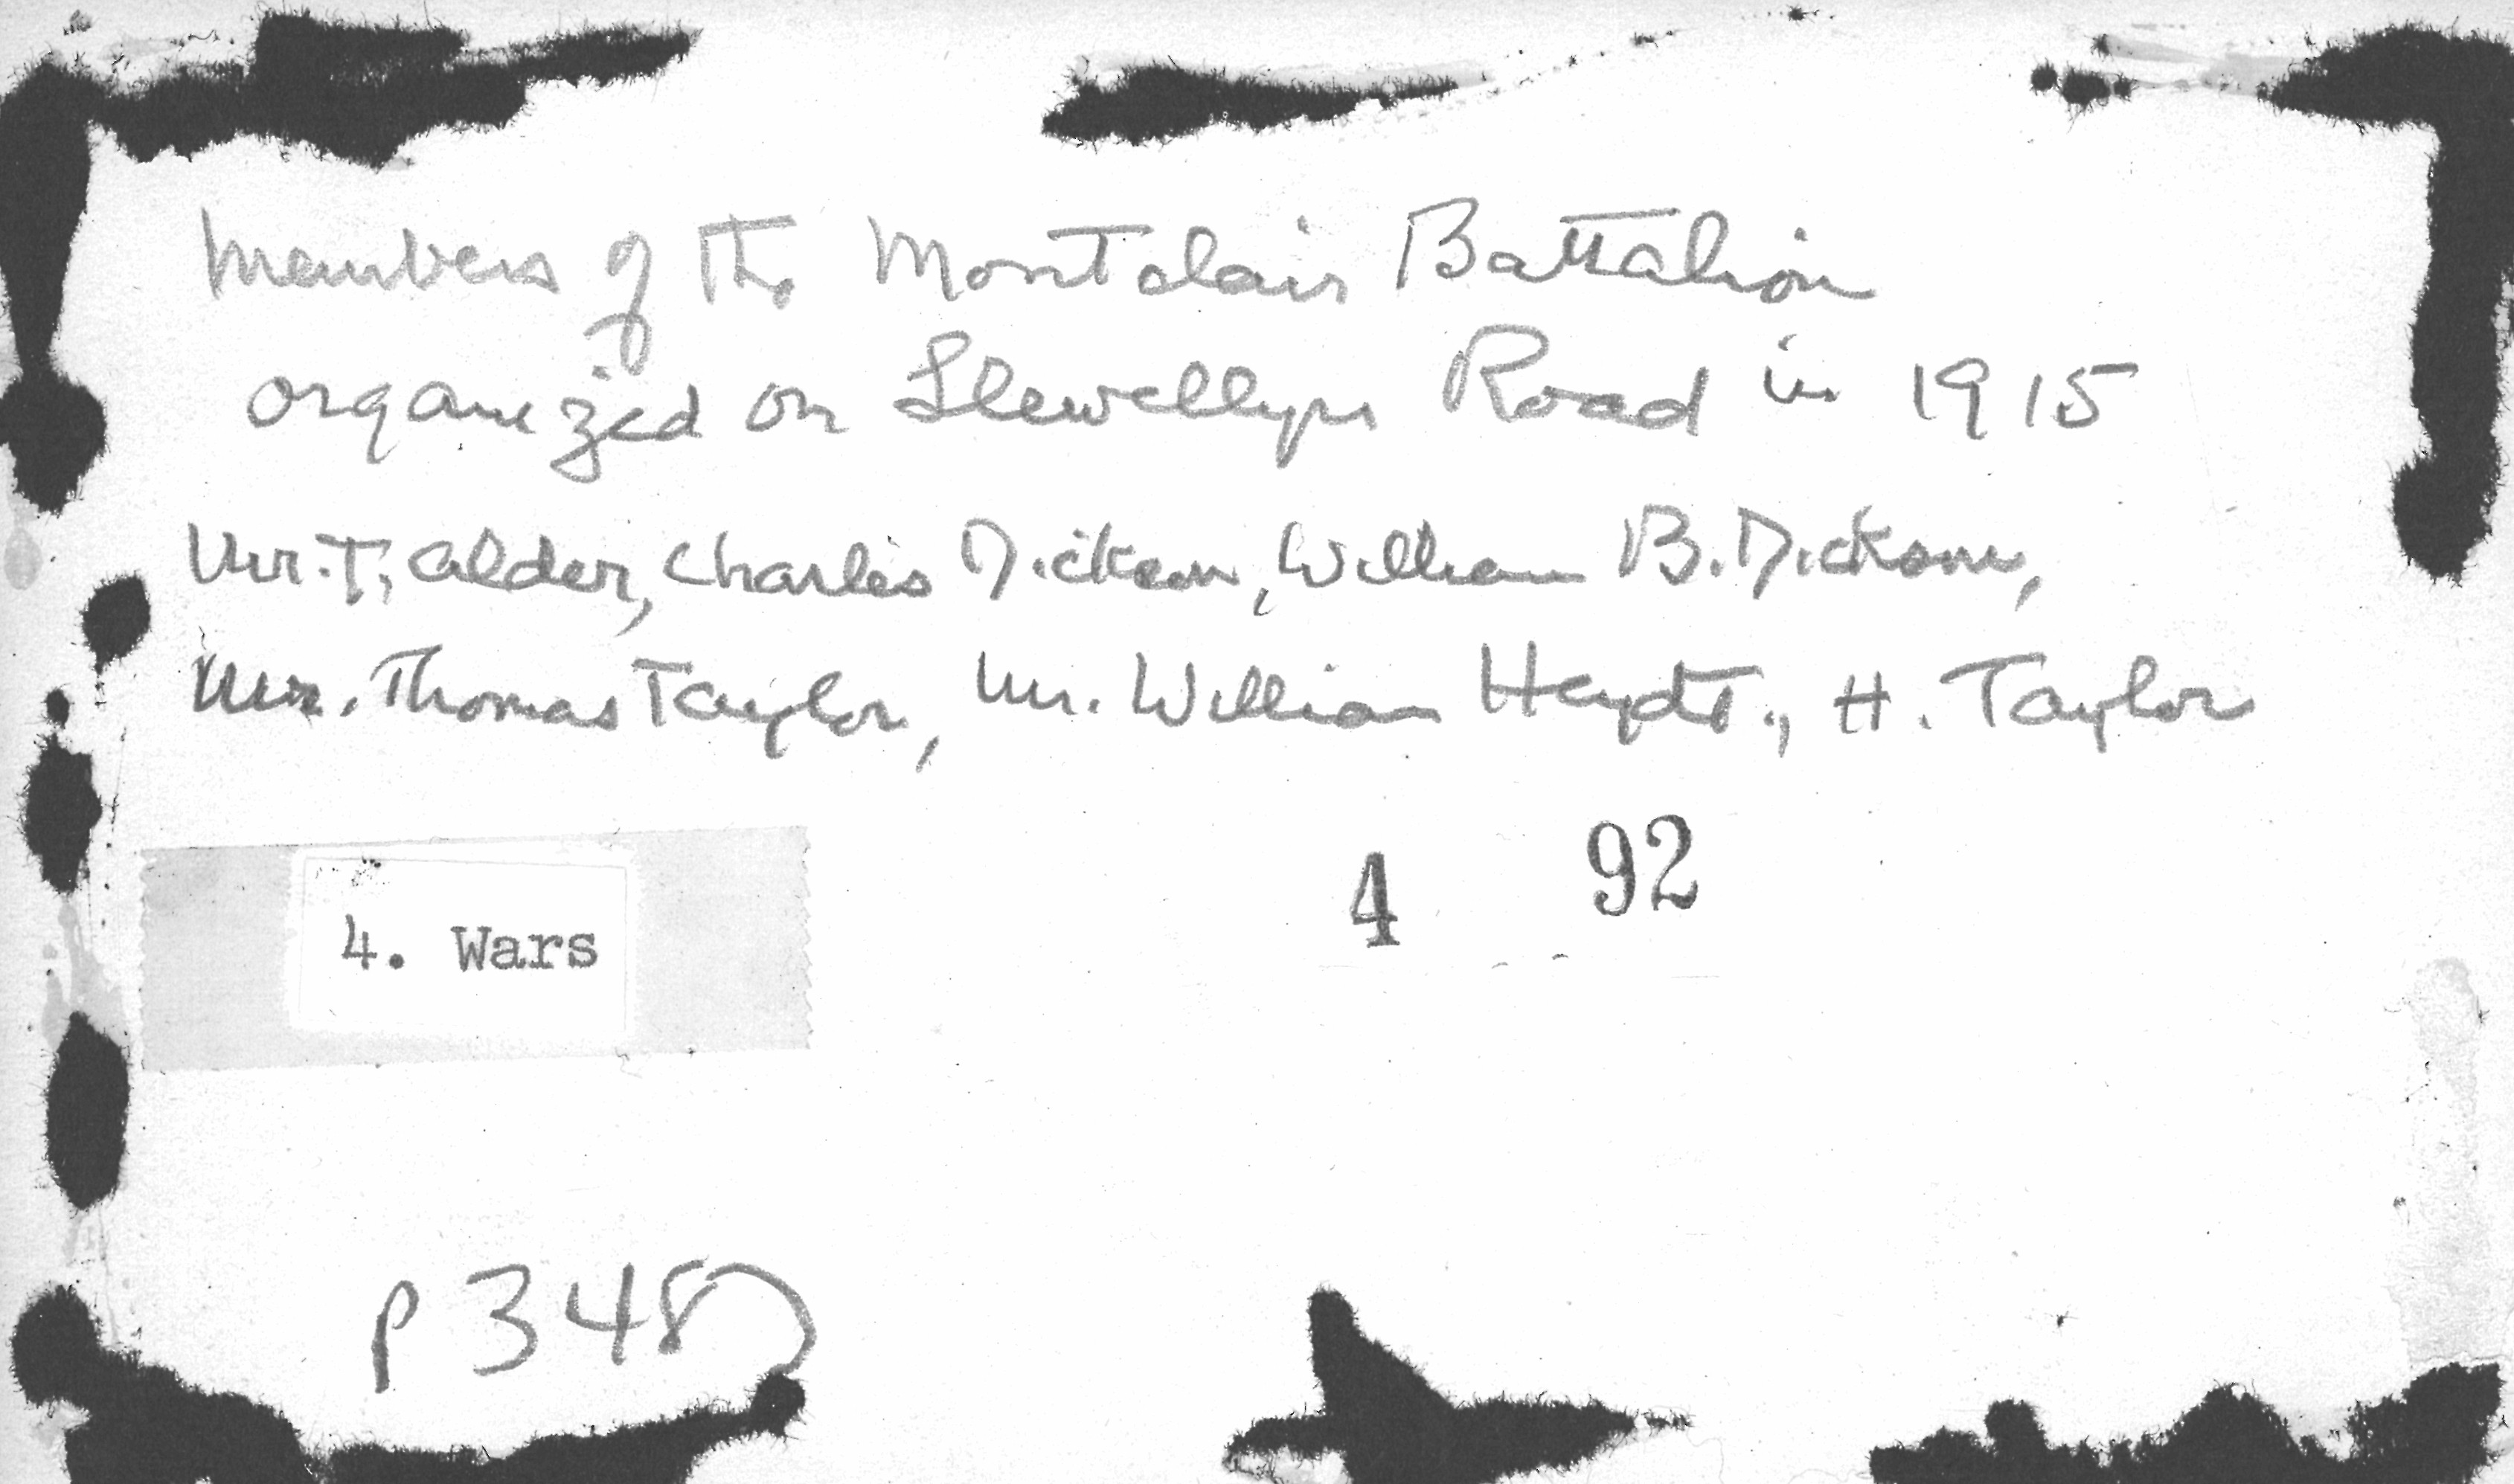 Members of the Montclair Battalion
organized on Llewellyn Road in 1915
Mr. T. Alder, Charles Dickson, William B. Dickson,
Mr. Thomas Taylor, Mr. William Heydt., H. Taylor
4 92
4. Wars
P348